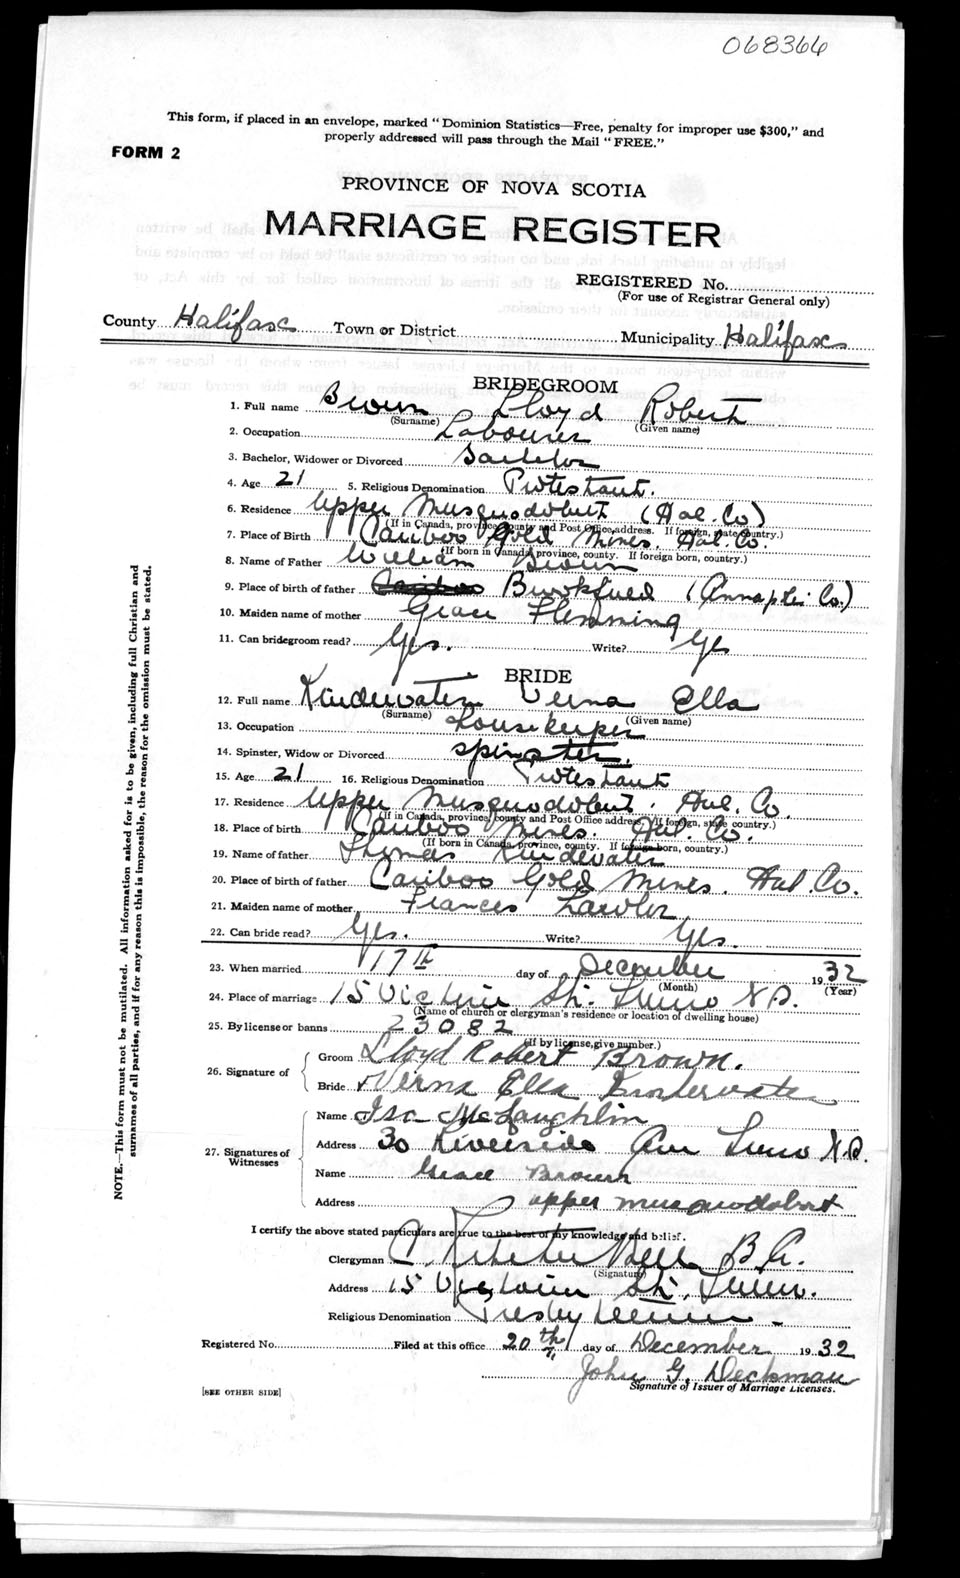 068366
This form, if placed in an envelope, marked "Dominion Statistics—Free, penalty for improper use $300," and
properly addressed will pass through the Mail "FREE."
FORM 2
PROVINCE OF NOVA SCOTIA
MARRIAGE REGISTER
REGISTERED No.
(For use of Registrar General only)
County Halifax Town or District Municipality Halifax
BRIDEGROOM
1. Full name Brown Lloyd Robert
(Surname) (Given name)
2. Occupation Labourer
3. Bachelor, Widower or Divorced Bachelor
4. Age 21 5. Religious Denomination Protestant.
6. Residence Upper Musquodobit (Hal. Co)
(If in Canada, province, county and Post Office address. If foreign, state country.)
7. Place of Birth Cariboo Gold Mines. Hal. Co.
(If born in Canada, province, county. If foreign born, country.)
8. Name of Father William Brown
9. Place of birth of father Cariboo Brookfield (Annaplis Co.)
10. Maiden name of mother Grace Flemming
11. Can bridegroom read? Yes. Write? Yes
BRIDE
12. Full name Kinderwater Verna Ella
(Surname) (Given name)
13. Occupation Housekeeper
14. Spinster, Widow or Divorced Spinster.
15. Age 21 16. Religious Denomination Protestant
17. Residence Upper Musquodobit. Hal. Co.
(If in Canada, province, county and Post Office address. If foreign, state country.)
18. Place of birth Cariboo Mines. Hal. Co.
(If born in Canada, province, county. If foreign born, country.)
19. Name of father Thomas Kinderwater
20. Place of birth of father Cariboo Gold Mines. Hal. Co.
21. Maiden name of mother Frances Lawlor
22. Can bride read? Yes. Write? Yes.
23. When married 17th day of December 1932
(Month) (Year)
24. Place of marriage 15 Victoria St. Truro N.S.
(Name of church or clergyman's residence or location of dwelling house)
25. By license or banns 23082
(If by license, give number.)
26. Signature of Groom Lloyd Robert Brown.
Bride Verna Ella Kinderwater
27. Signatures of Witnesses
Name Isa McLaughlin
Address 30 Riverside Ave Truro N.S.
Name Grace Brown
Address upper musquodobit
I certify the above stated particulars are true to the best of my knowledge and belief.
Clergyman B.A.
(Signature)
Address 15 Victoria St. Truro.
Religious Denomination Presbyterian
Registered No. Filed at this office 20th day of December 1932
John G. Deckman
Signature of Issuer of Marriage Licenses.
[SEE OTHER SIDE]
NOTE.—This form must not be mutilated. All information asked for is to be given, including full Christian and
surnames of all parties, and if for any reason this is impossible, the reason for the omission must be stated.